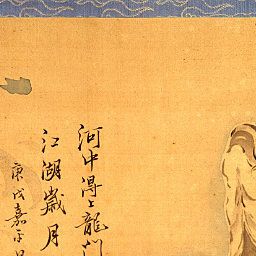 河中得上龍門
江湖歲月
庚戌嘉平月